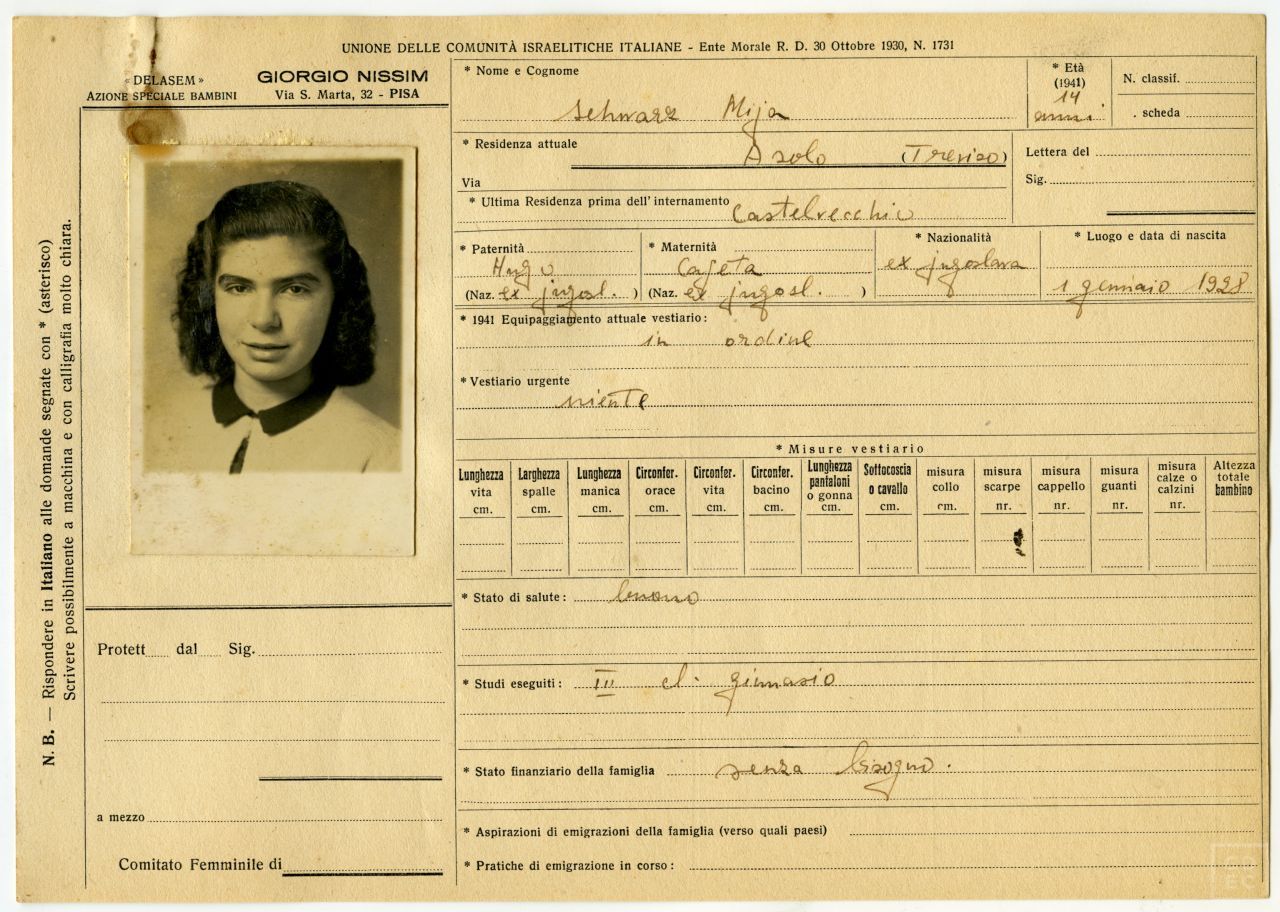 UNIONE DELLE COMUNITÀ ISRAELITICHE ITALIANE - Ente Morale R. D. 30 Ottobre 1930, N. 1731
« DELASEM »
AZIONE SPECIALE BAMBINI
GIORGIO NISSIM
Via S. Marta, 32 - PISA
N. B. — Rispondere in Italiano alle domande segnate con * (asterisco)
Scrivere possibilmente a macchina e con calligrafia molto chiara.
Protett dal Sig.
a mezzo
Comitato Femminile di
* Nome e Cognome
Schwarz Mija
* Età
(1941)
14
anni
N. classif.
. scheda
* Residenza attuale
Asolo (Treviso)
Via
Lettera del
Sig.
* Ultima Residenza prima dell'internamento Castelvecchio
* Paternità
Hugo
(Naz. ex jugosl. )
* Maternità
(Naz. ex jugosl. )
* Nazionalità
ex jugoslava
* Luogo e data di nascita
1 gennaio 1928
* 1941 Equipaggiamento attuale vestiario:
in ordine
* Vestiario urgente
niente
* Misure vestiario
Lunghezza vita cm.
Larghezza spalle cm.
Lunghezza manica cm.
Circonfer. orace cm.
Circonfer. vita cm.
Circonfer. bacino cm.
Lunghezza pantaloni o gonna cm.
Sottocoscia o cavallo cm.
misura collo cm.
misura scarpe nr.
misura cappello nr.
misura guanti nr.
misura calze o calzini nr.
Altezza totale bambino
* Stato di salute: buono
* Studi eseguiti: III cl. ginnasio
* Stato finanziario della famiglia senza bisogno.
* Aspirazioni di emigrazioni della famiglia (verso quali paesi)
* Pratiche di emigrazione in corso :